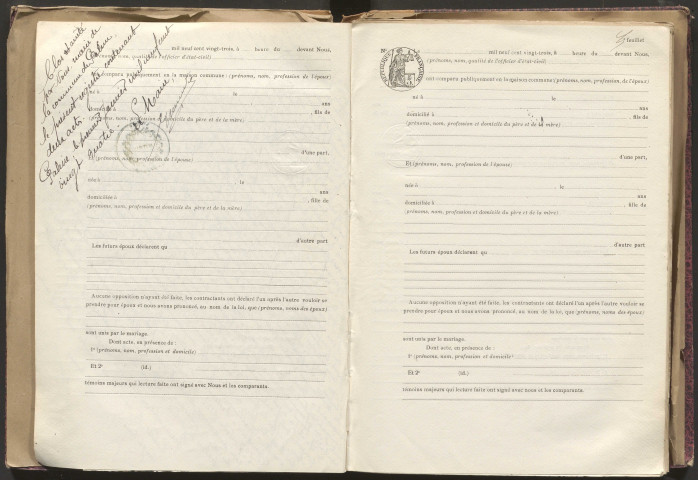 Clos et arrêté
par nous maire de
la commune de
le présent registre contenant
deux actes
le premier janvier mil neuf cent
vingt quatre
Le Maire,
mil neuf cent vingt-trois, à heure du devant Nous,
(prénoms, nom, qualité de l'officier d'état-civil)
ont comparu publiquement en la maison commune : (prénoms, nom, profession de l'époux)
le
ans
domicilié à , fils de
(prénoms, nom, profession et domicile du père et de la mère)
d'une part,
Et (prénoms, nom, profession de l'épouse)
née à le
ans
domiciliée à , fille de
(prénoms, nom, profession et domicile du père et de la mère)
d'autre part
Les futurs époux déclarent qu
Aucune opposition n'ayant été faite, les contractants ont déclaré l'un après l'autre vouloir se
prendre pour époux et nous avons prononcé, au nom de la loi, que (prénoms, noms des époux)
sont unis par le mariage.
Dont acte, en présence de :
1º (prénoms, nom, profession et domicile)
Et 2º (id.)
témoins majeurs qui lecture faite ont signé avec Nous et les comparants.
feuillet
RÉPUBLIQUE FRANÇAISE
mil neuf cent vingt-trois, à heure du devant Nous,
(prénoms, nom, qualité de l'officier d'état-civil)
ont comparu publiquement en la maison commune (prénoms, nom, profession de l'époux)
né à le
ans
domicilié à , fils de
(prénoms, nom, profession et domicile du père et de la mère)
d'une part,
Et (prénoms, nom, profession de l'épouse)
née à le
ans
domiciliée à , fille de
(prénoms, nom, profession et domicile du père et de la mère)
d'autre part
Les futurs époux déclarent qu
Aucune opposition n'ayant été faite, les contractants ont déclaré l'un après l'autre vouloir se
prendre pour époux et nous avons prononcé, au nom de la loi, que (prénoms, noms des époux)
sont unis par le mariage.
Dont acte, en présence de :
1º (prénoms, nom, profession et domicile)
Et 2º (id.)
témoins majeurs qui lecture faite ont signé avec nous et les comparants.